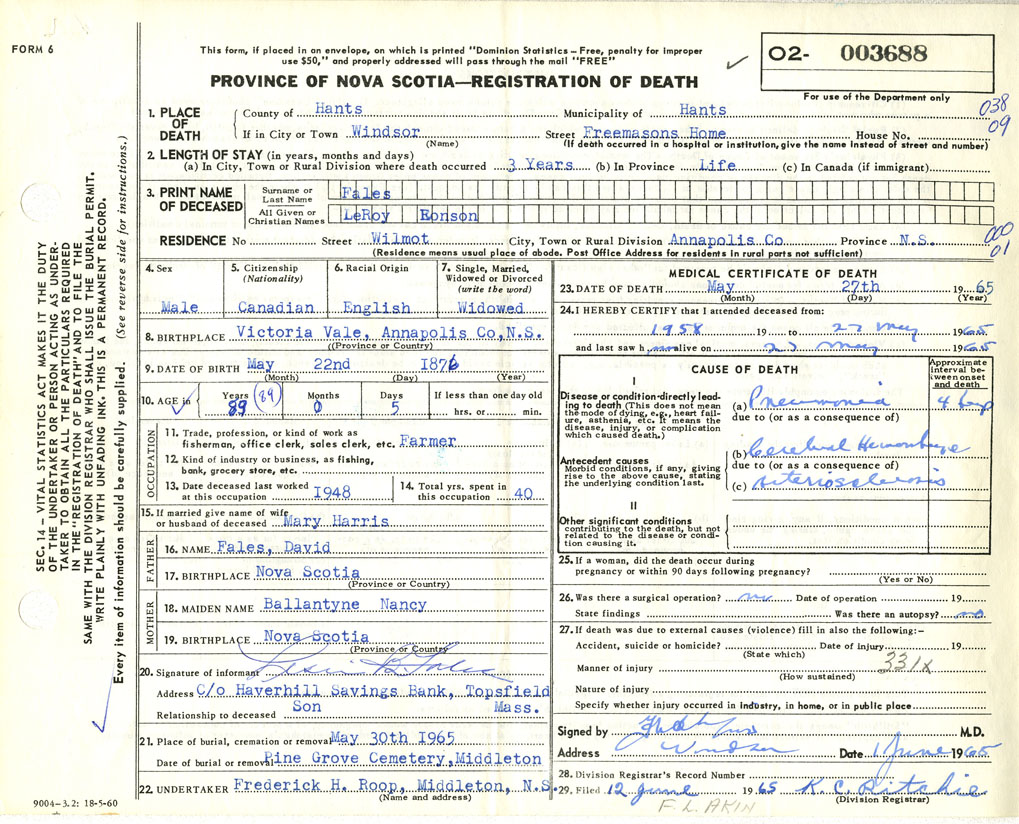 FORM 6
This form, if placed in an envelope, on which is printed "Dominion Statistics – Free, penalty for improper
use $50," and properly addressed will pass through the mail "FREE"
O2- 003688
For use of the Department only
PROVINCE OF NOVA SCOTIA—REGISTRATION OF DEATH
038
09
1. PLACE OF DEATH
County of Hants Municipality of Hants
If in City or Town Windsor Street Freemasons Home House No.
(Name) (If death occurred in a hospital or institution, give the name instead of street and number)
2. LENGTH OF STAY (in years, months and days)
(a) In City, Town or Rural Division where death occurred 3 Years (b) In Province Life (c) In Canada (if immigrant)
3. PRINT NAME OF DECEASED
Surname or Last Name Fales
All Given or Christian Names LeRoy Eonson
000
01
RESIDENCE No Street Wilmot City, Town or Rural Division Annapolis Co Province N.S.
(Residence means usual place of abode. Post Office Address for residents in rural parts not sufficient)
4. Sex
Male
5. Citizenship
(Nationality)
Canadian
6. Racial Origin
English
7. Single, Married,
Widowed or Divorced
(write the word)
Widowed
8. BIRTHPLACE Victoria Vale, Annapolis Co,N.S.
((Province or Country)
9. DATE OF BIRTH May 22nd 1876
(Month) (Day) (Year)
10. AGE in Years Months Days If less than one day old
89 (89) 0 5 hrs. or min.
OCCUPATION
11. Trade, profession, or kind of work as
fisherman, office clerk, sales clerk, etc. Farmer
12. Kind of industry or business, as fishing,
bank, grocery store, etc.
13. Date deceased last worked
at this occupation I948
14. Total yrs. spent in
this occupation 40
15. If married give name of wife
or husband of deceased Mary Harris
FATHER
16. NAME Fales, David
17. BIRTHPLACE Nova Scotia
(Province or Country)
MOTHER
18. MAIDEN NAME Ballantyne Nancy
19. BIRTHPLACE Nova Scotia
(Province or Country)
20. Signature of informant
Address C/o Haverhill Savings Bank, Topsfield
Relationship to deceased Son Mass.
21. Place of burial, cremation or removal May 30th I965
Date of burial or removal Pine Grove Cemetery, Middleton
22. UNDERTAKER Frederick H. Roop, Middleton, N.S.
(Name and address)
9004-3.2: 18-5-60
MEDICAL CERTIFICATE OF DEATH
23. DATE OF DEATH May 27th 1965
(Month) (Day) (Year)
24. I HEREBY CERTIFY that I attended deceased from:
1958 19 to 27 May 1965
and last saw h alive on 27 May 1965
CAUSE OF DEATH
Approximate
interval be-
tween onset
and death
I
Disease or condition directly lead-
ing to death (This does not mean
the mode of dying, e.g., heart fail-
ure, asthenia, etc. It means the
disease, injury, or complication
which caused death.)
(a) Pneumonia 4
due to (or as a consequence of)
Antecedent causes
Morbid conditions, if any, giving
rise to the above cause, stating
the underlying condition last.
(b) Cerebral Hemorrhage
due to (or as a consequence of)
(c) Arteriosclerosis
II
Other significant conditions
contributing to the death, but not
related to the disease or condi-
tion causing it.
25. If a woman, did the death occur during
pregnancy or within 90 days following pregnancy?
(Yes or No)
26. Was there a surgical operation? no Date of operation 19
State findings Was there an autopsy? no
27. If death was due to external causes (violence) fill in also the following:–
Accident, suicide or homicide? Date of injury 19
(State which)
331x
Manner of injury
(How sustained)
Nature of injury
Specify whether injury occurred in industry, in home, or in public place
Signed by M.D.
Address Windsor Date 1 June 1965
28. Division Registrar's Record Number
29. Filed 12 June 1965 K. C. Ritchie
(Division Registrar)
F. L. AKIN
SEC. 14 – VITAL STATISTICS ACT MAKES IT THE DUTY
OF THE UNDERTAKER OR PERSON ACTING AS UNDER-
TAKER TO OBTAIN ALL THE PARTICULARS REQUIRED
IN THE "REGISTRATION OF DEATH" AND TO FILE THE
SAME WITH THE DIVISION REGISTRAR WHO SHALL ISSUE THE BURIAL PERMIT.
WRITE PLAINLY WITH UNFADING INK. THIS IS A PERMANENT RECORD.
Every item of information should be carefully supplied. (See reverse side for instructions.)